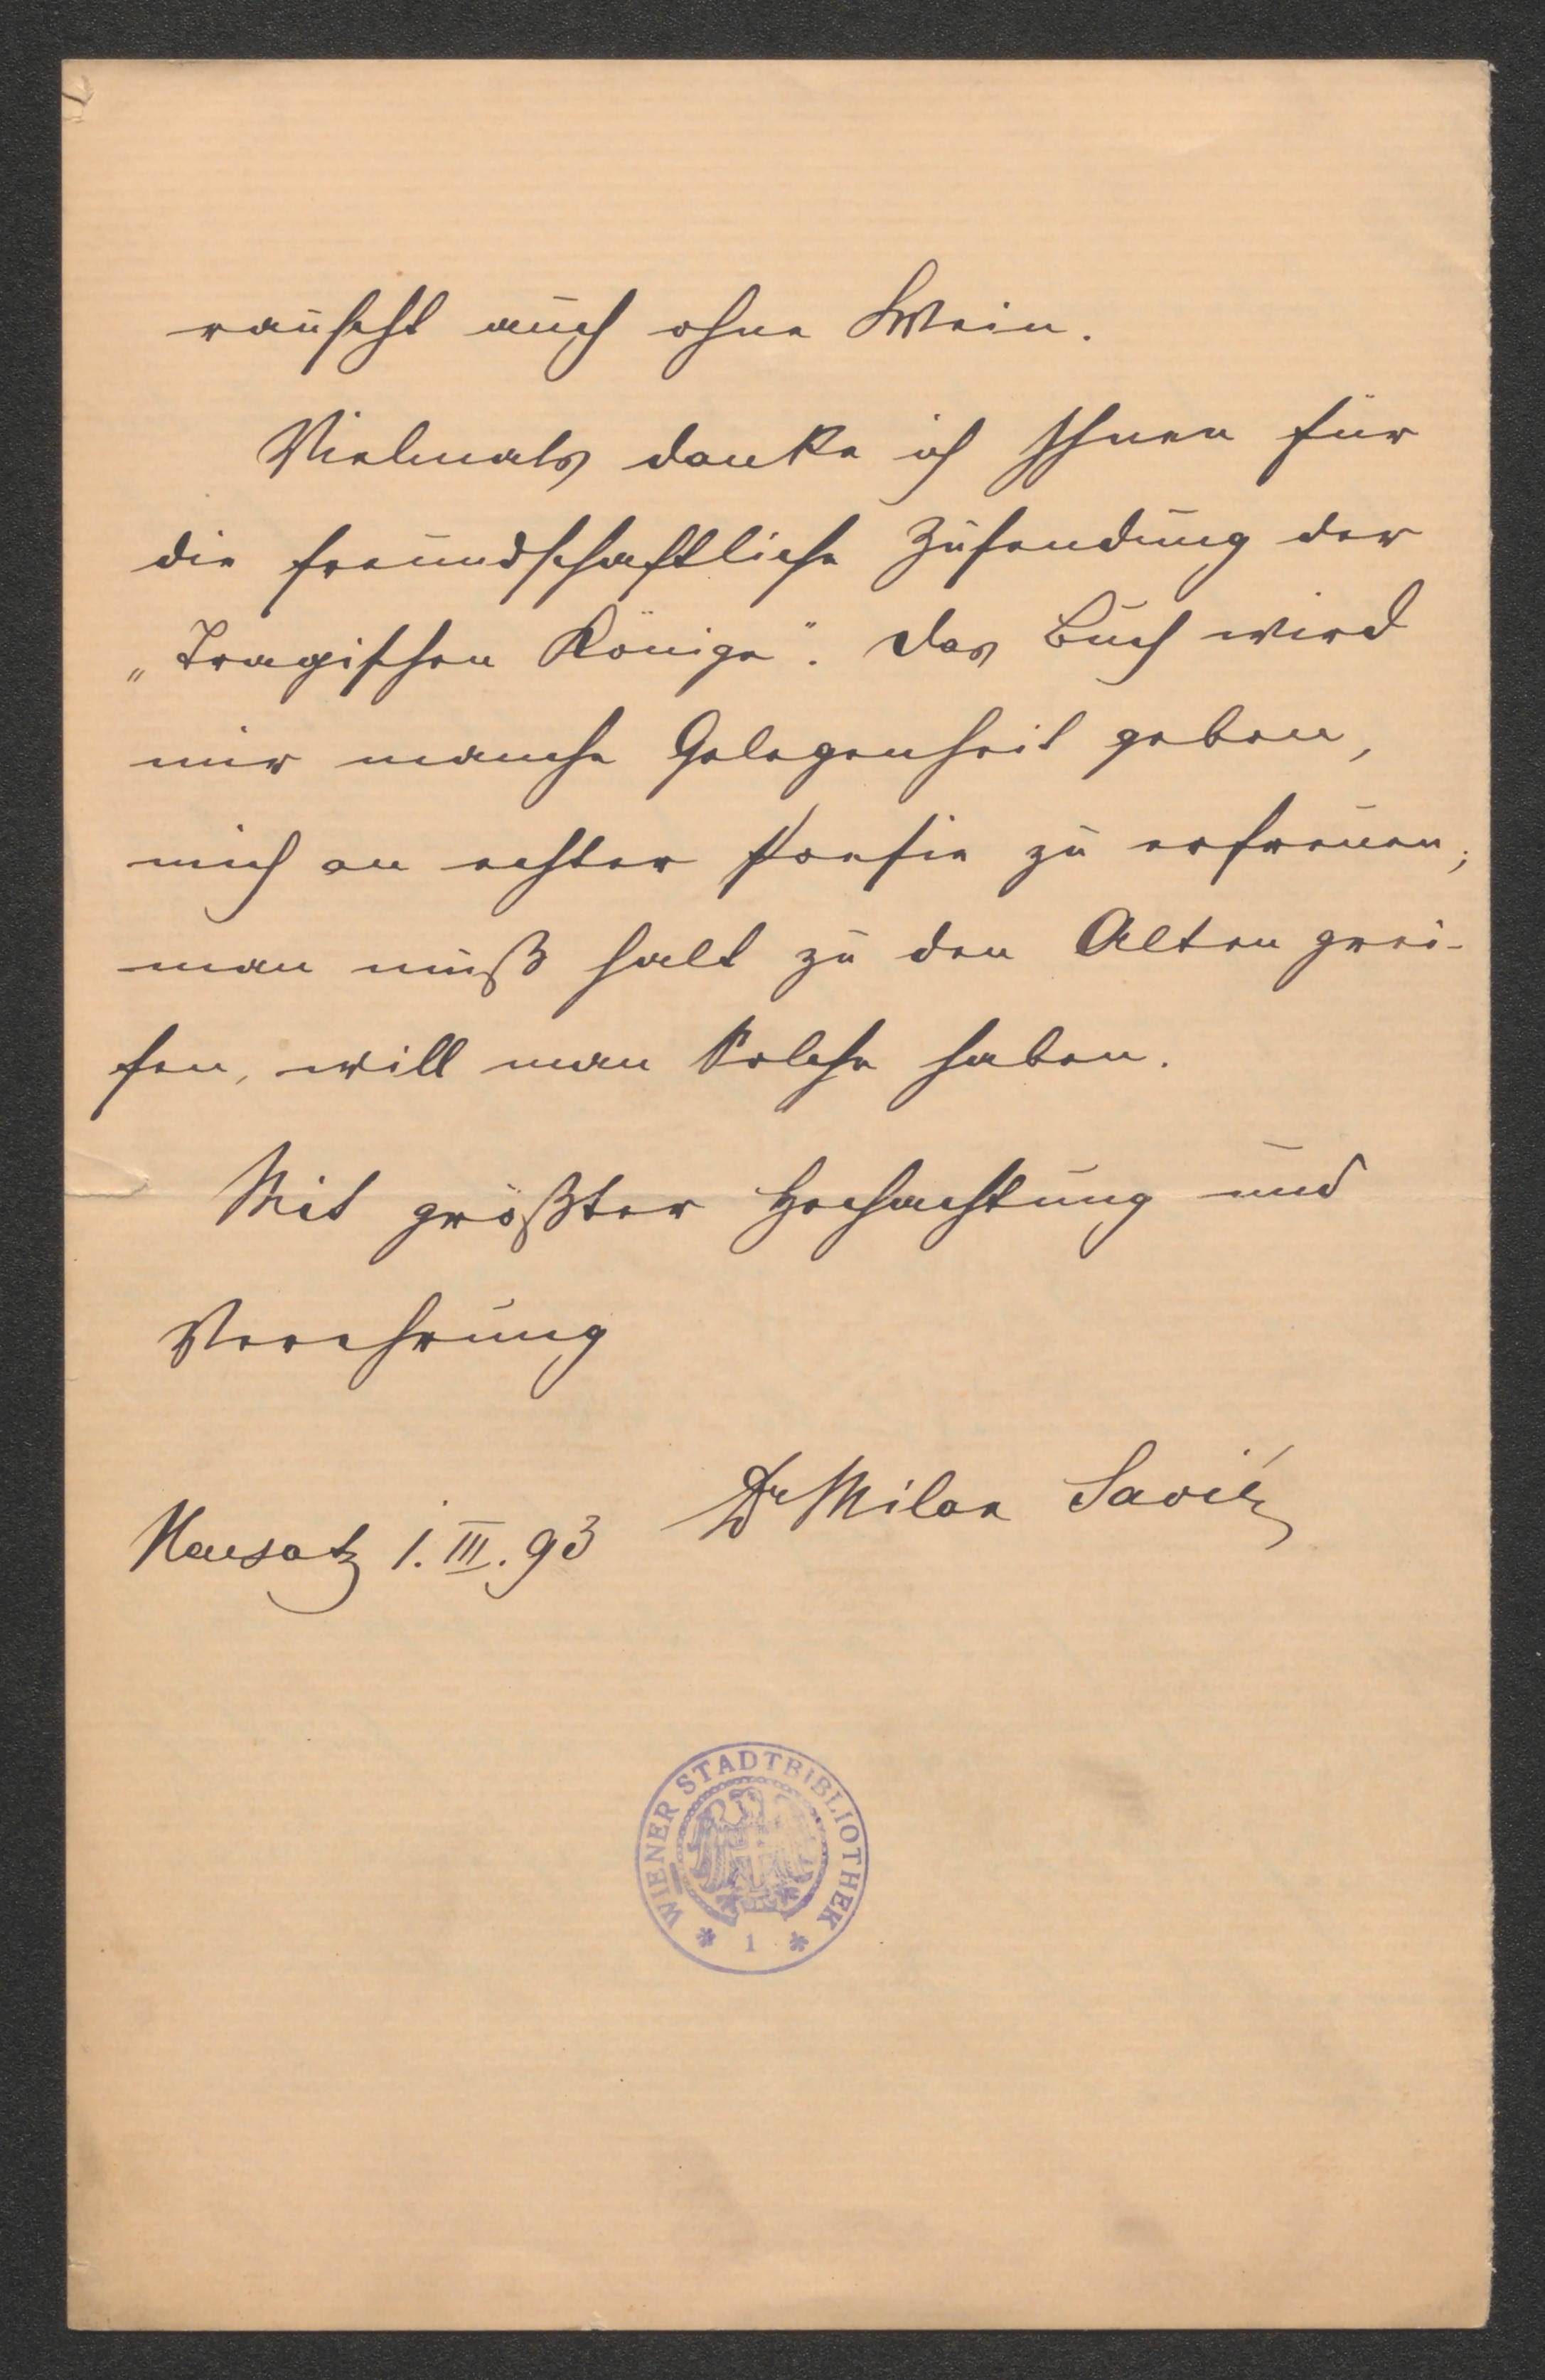 rauscht auch ohne Wein.
Vielmals danke ich Ihnen für
die freundschaftliche Zusendung der
„Tragischen Könige“. Das Buch wird
mir manche Gelegenheit geben,
mich an echter Poesie zu erfreuen;
man muß halt zu den Alten grei-
fen, will man Solche haben.
Mit größter Hochachtung und
Verehrung
Dr Milan Savić
Neusatz 1. III. 93
WIENER STADTBIBLIOTHEK
* 1 *